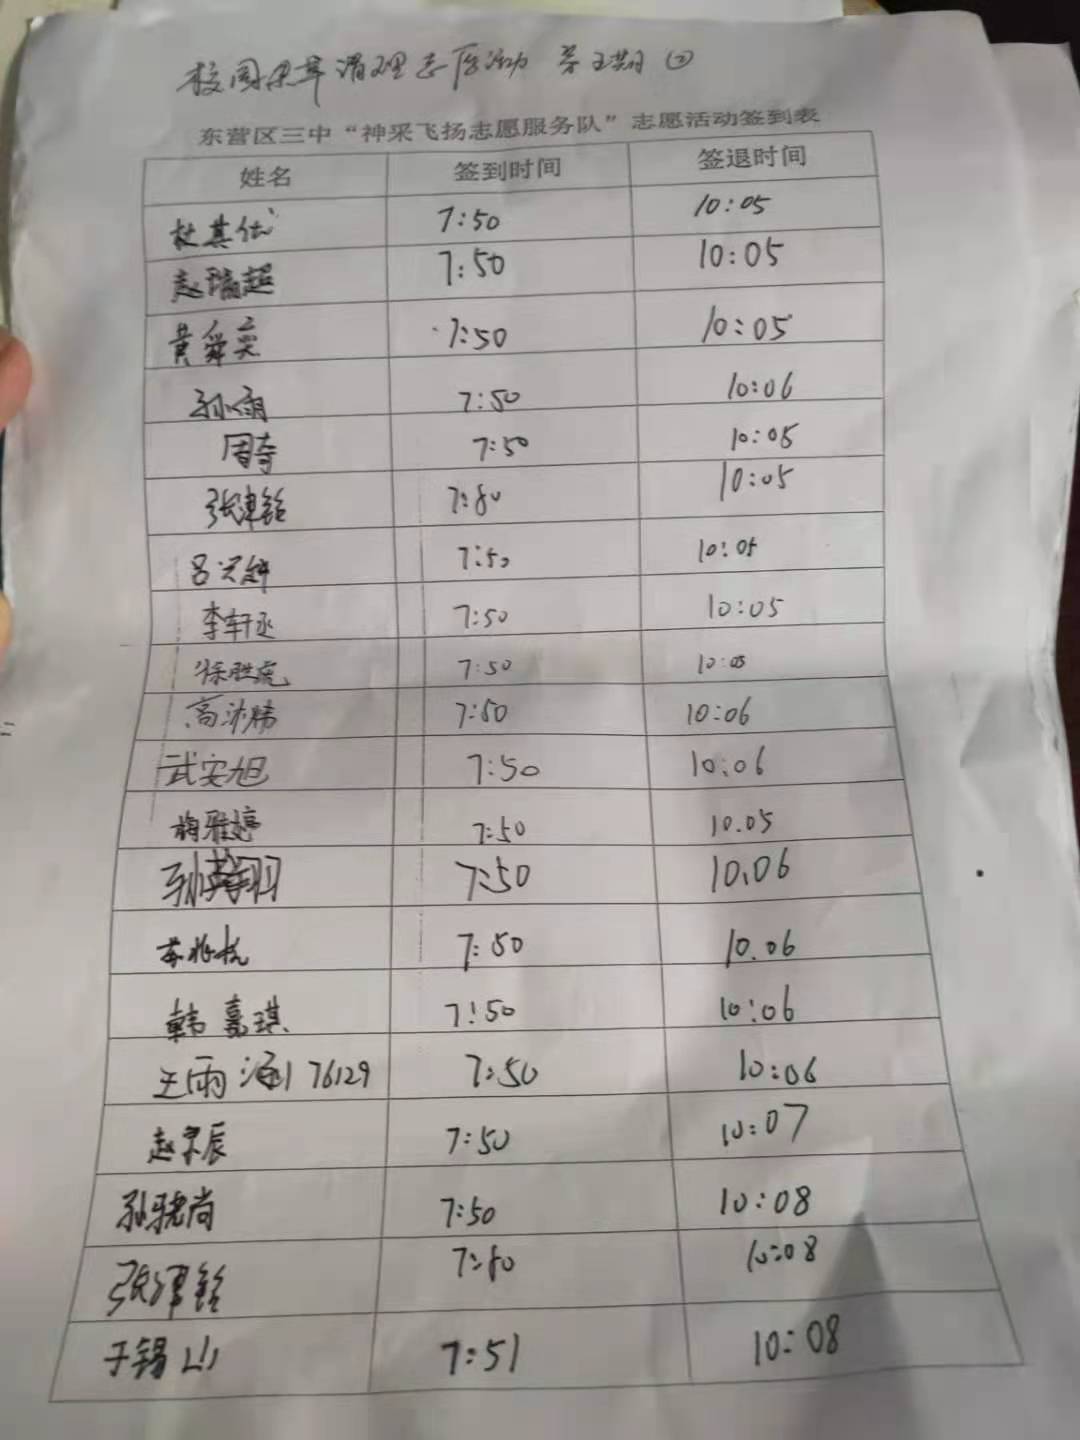 校园杂草清理志愿活动 ②
东营区三中“神采飞扬志愿服务队”志愿活动签到表
姓名 签到时间 签退时间
杜其优 7:50 10:05
赵瑞超 7:50 10:05
黄舜奕 7:50 10:05
孙雨 7:50 10:06
周奇 7:50 10:05
张津铭 7:50 10:05
吕 7:50 10:05
李轩丞 7:50 10:05
徐胜虎 7:50 10:05
高 7:50 10:06
武安旭 7:50 10:06
梅雅婷 7:50 10.05
孙翔 7:50 10.06
7:50 10.06
韩嘉琪 7:50 10:06
王雨涵176129 7:50 10:06
赵 辰 7:50 10:07
孙骁尚 7:50 10:08
张津铭 7:50 10:08
于锡山 7:51 10:08